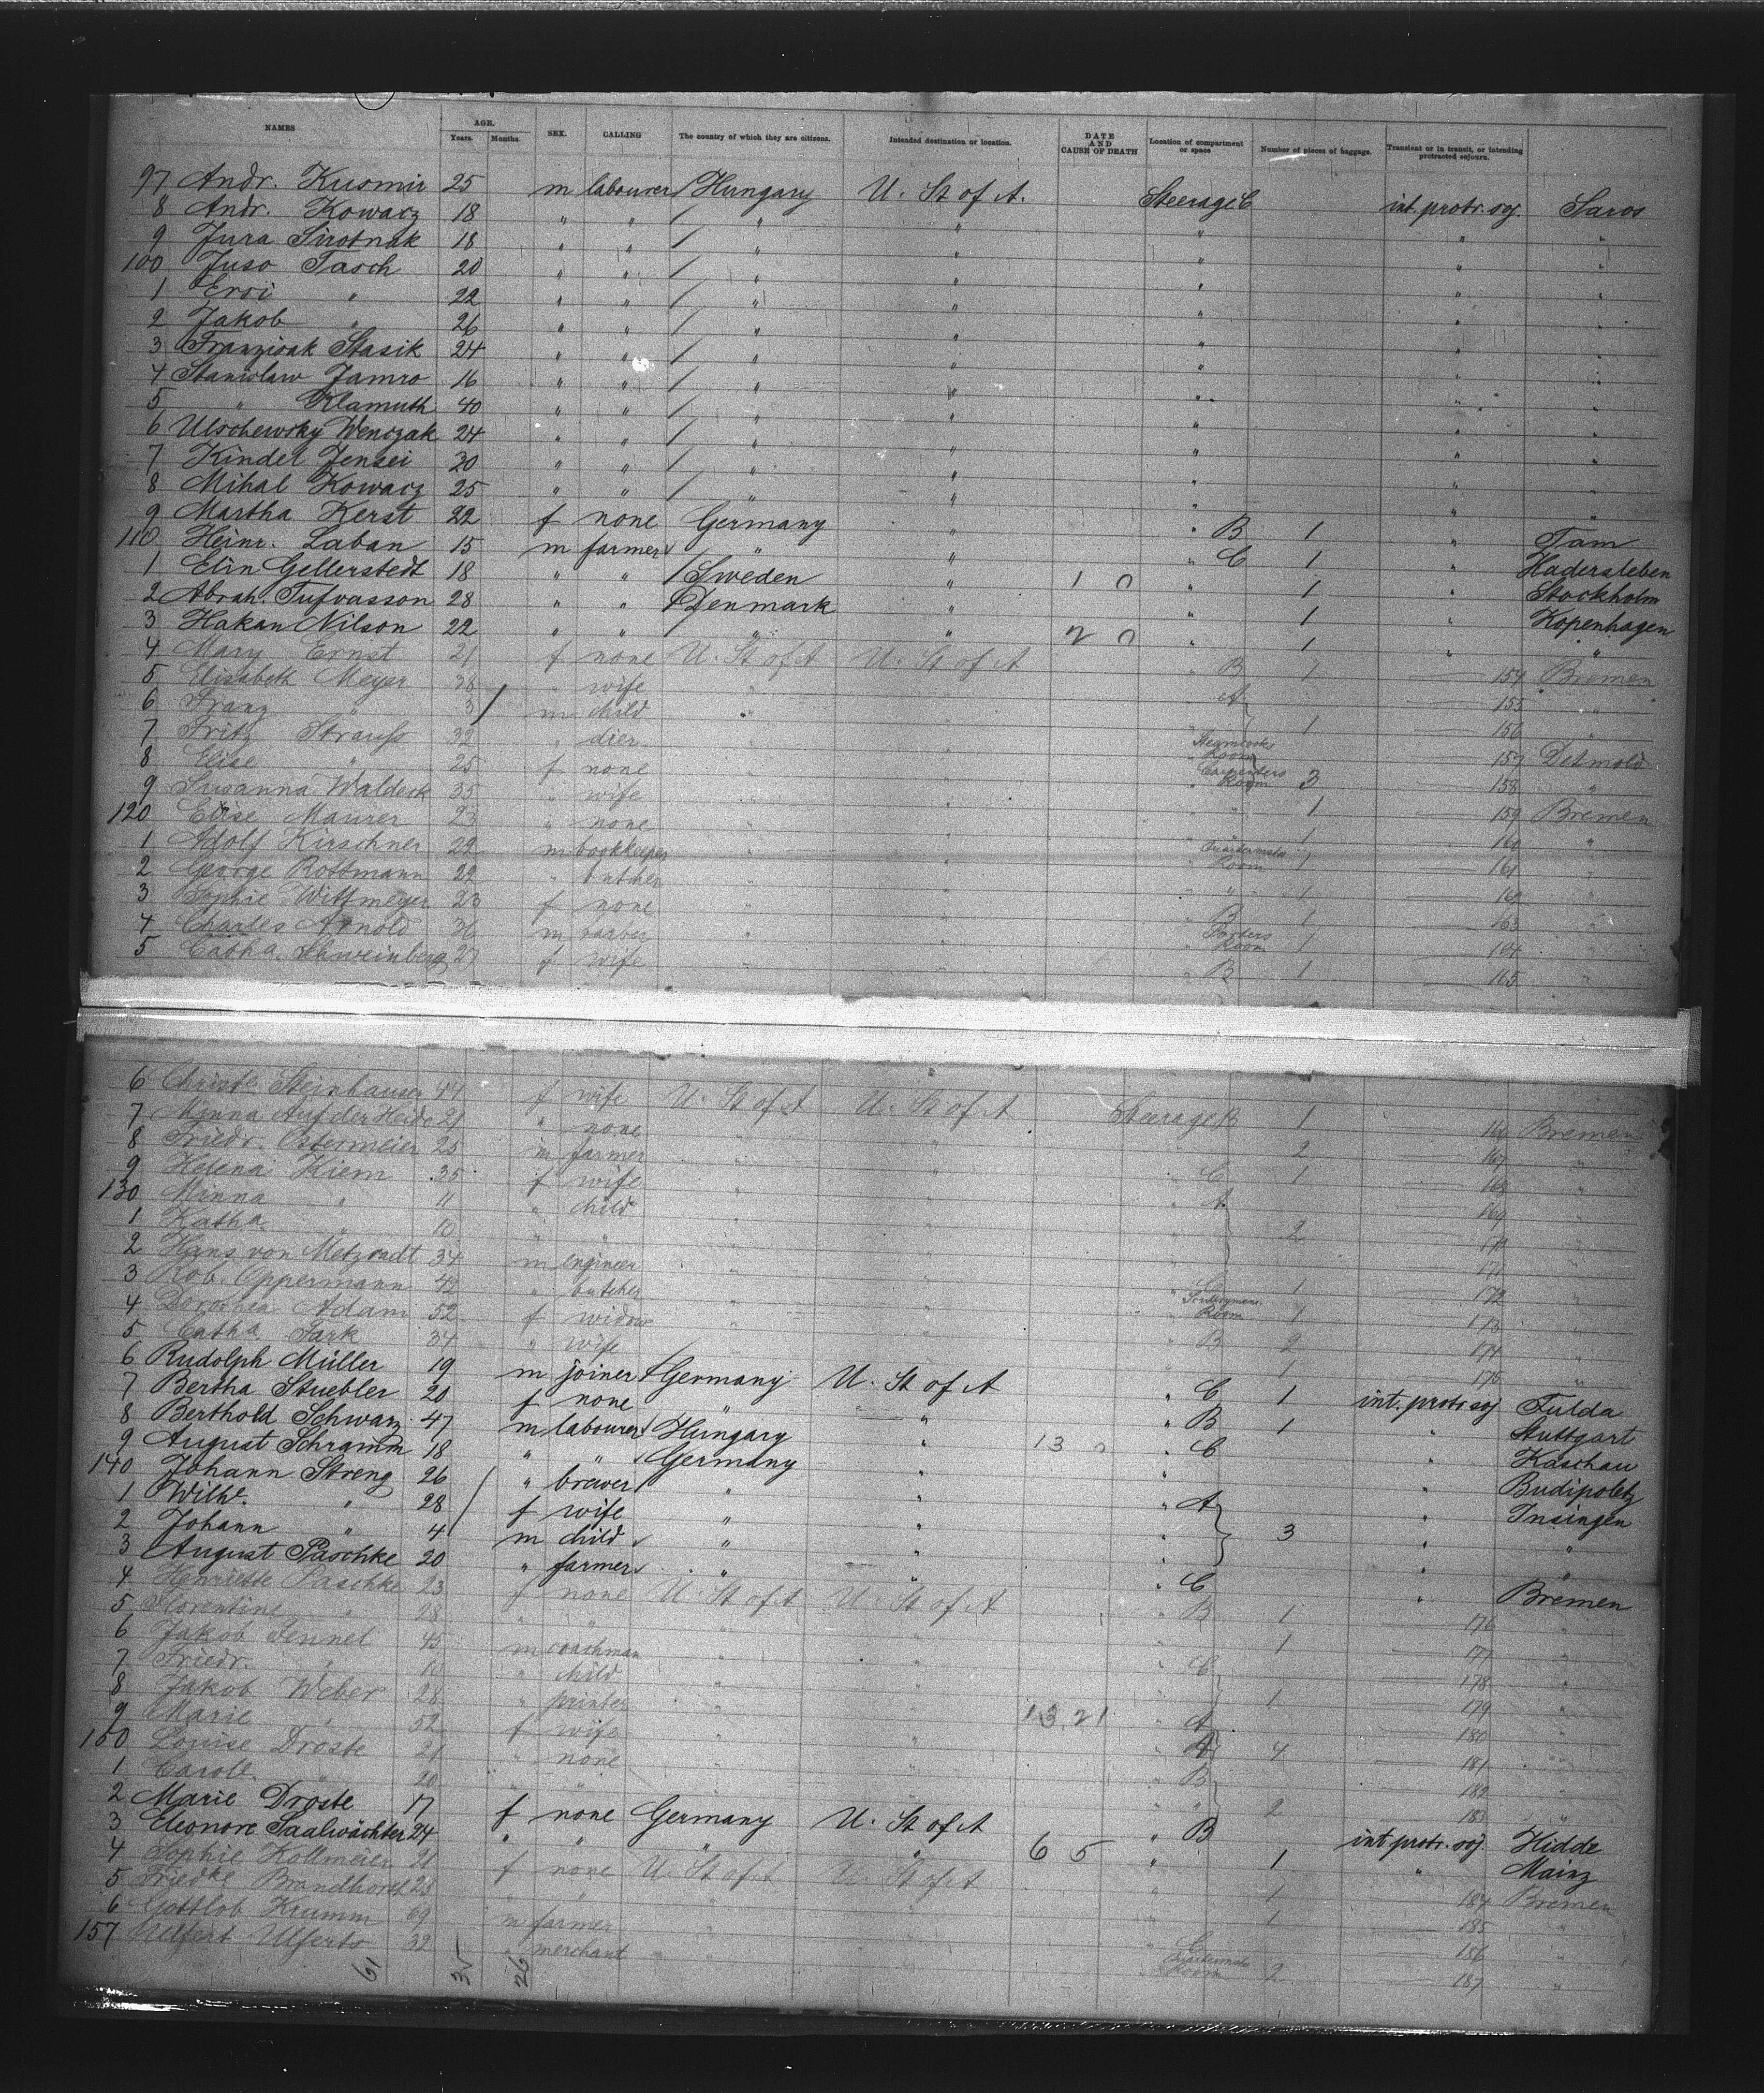 NAMES AGE. Years. Months. SEX. CALLING The country of which they are citizens. Intended destination or location. DATE AND CAUSE OF DEATH Location of compartment or space Number of pieces of baggage. Transient or in transit, or intending protracted sojourn.
97 Andr. Kusmir 25 m labourer / Hungary U. St of A. Steerage C int. protr. soj. Saros
8 Andr. Kowacz 18 " " / " " " " "
9 Jura Sirotnak 18 " " / " " " " "
100 Juso Tasch 20 " " / " " " " "
1 Ersi " 22 " " / " " " " "
2 Jakob " 26 " " / " " " " "
3 Franzisak Stasik 24 " " / " " " " "
4 Stanislaw Jamro 16 " " / " " " " "
5 " Klamuth 40 " " / " " " " "
6 Ulschewsky Wenczak 24 " " / " " " " "
7 Kindel Jensei 30 " " / " " " " "
8 Mihal Kowacz 25 " " / " " " " "
9 Martha Kerst 22 f none Germany " " B 1 " Tam
110 Heinr. Laban 15 m farmer " " " C 1 " Hadersleben
1 Elin Gellerstedt 18 " " / Sweden " 1 0 " 1 " Stockholm
2 Abrah. Tufvasson 28 " " / Denmark " " 1 " Kopenhagen
3 Hakan Nilson 22 " " " " 2 0 " 1 " "
4 Mary Ernst 21 f none U. St of A U. St of A " B 1 154 Bremen
5 Elisabeth Meyer 38 " wife " " " A 155 "
6 Franz " 3 m child " " 1 156 "
7 Fritz Strauss 32 " dier " " Room 157 Detmold
8 Elise " 25 f none " " Carpenters Room 3 158 "
9 Susanna Waldeck 35 " wife " " " 1 159 Bremen
120 Elise Maurer 23 " none " " 1 160 "
1 Adolf Kirschner 22 m bookkeeper " " Room 1 161 "
2 George Rottmann 22 " butcher " " " 1 162 "
3 Sophie Wittmeyer 23 f none " " B 1 163 "
4 Charles Arnold 36 m barber " " Porters Room 1 164 "
5 Catha. Schweinberg 27 f wife " " B 1 165 "
6 Christe Steinhauser 44 f wife U. St of A U. St of A Steerage B 1 166 Bremen
7 Minna Auf der Heide 21 " none " " 2 167 "
8 Friedr. Ostermeier 25 m farmer " " C 1 168 "
9 Helena Kiem 35 f wife " " A 169 "
130 Minna " 11 " child " " 2 170 "
1 Katha. " 10 " " " " 171 "
2 Hans von Metzradt 34 m engineer " " 1 172 "
3 Rob. Oppermann 42 " butcher " " Room 1 173 "
4 Dorothea Adam 52 f widow " " B 2 174 "
5 Catha Tark 34 " wife " " " 1 175 "
6 Rudolph Müller 19 m joiner Germany U. St of A " C 1 int. protr soj Fulda
7 Bertha Stuebler 20 f none " " " B 1 " Stuttgart
8 Berthold Schwarz 47 m labourer Hungary " 13 0 " C Kaschau
9 August Schramm 18 " " Germany " " " Budipoletz
140 Johann Streng 26 " brewer " " " A " Insingen
1 Wilhe. " 28 f wife " " " 3 " "
2 Johann " 4 m child " " " " "
3 August Paschke 20 " farmer " " " C " Bremen
4 Henriette Paschke 23 f none U. St of A U. St of A " B 1 176 "
5 Florentine " 28 " " " " 1 177 "
6 Jakob Fennel 45 m coachman " " " C 178 "
7 Friedr. " 10 " child " " " 1 179 "
8 Jakob Weber 28 " printer " " 13 21 " A 180 "
9 Marie " 52 f wife " " " A 4 181 "
150 Louise Droste 21 " none " " " B 182 "
1 Carole. " 20 " " " " " 2 183 "
2 Marie Droste 17 f none Germany U. St of A " B int protr. soj. Hidde
3 Eleonore Saalwächter 24 " " " " 6 5 " 1 " Mainz
4 Sophie Kollmeier 21 f none U. St of A U. St of A " 1 184 Bremen
5 Friedke Brandhorst 23 " " " " " 1 185 "
6 Gottlob Krumm 69 m farmer " " " C 186 "
157 Ulfert Ulferts 32 " merchant " " Room 2 187 "
61 35 26